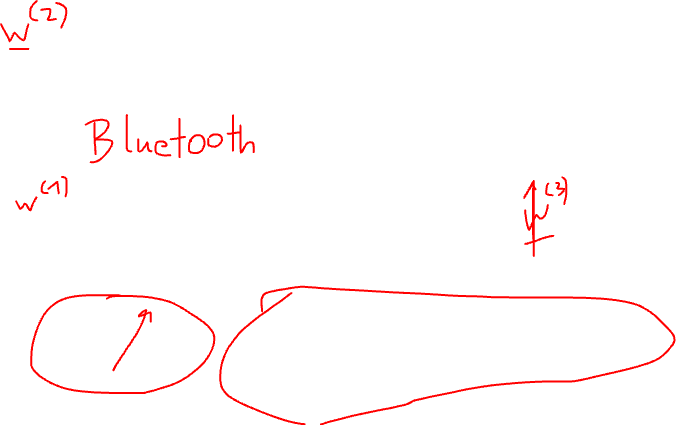 w^(2)
Bluetooth
w^(1)
w^(3)